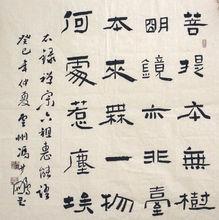 菩提本无樹
明鏡亦非臺
本來無一物
何處惹塵埃
錄禪宗六祖惠能
癸巳年仲夏雲州馮